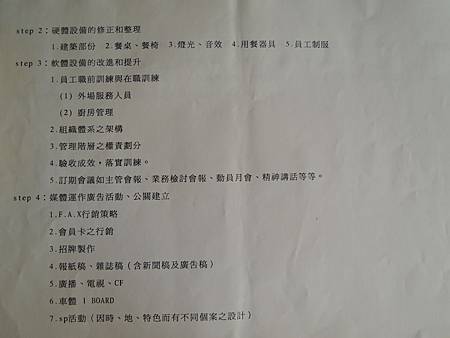 step 2:硬體設備的修正和整理
1.建築部份 2.餐桌、餐椅 3.燈光、音效 4.用餐器具 5.員工制服
step 3:軟體設備的改進和提升
1.員工職前訓練與在職訓練
(1) 外場服務人員
(2) 廚房管理
2.組織體系之架構
3.管理階層之權責劃分
4.驗收成效,落實訓練。
5.訂期會議如主管會報、業務檢討會報、動員月會、精神講話等等。
step 4:媒體運作廣告活動、公關建立
1.F.A.X行銷策略
2.會員卡之行銷
3.招牌製作
4.報紙稿、雜誌稿(含新聞稿及廣告稿)
5.廣播、電視、CF
6.車體 I BOARD
7.sp活動(因時、地、特色而有不同個案之設計)